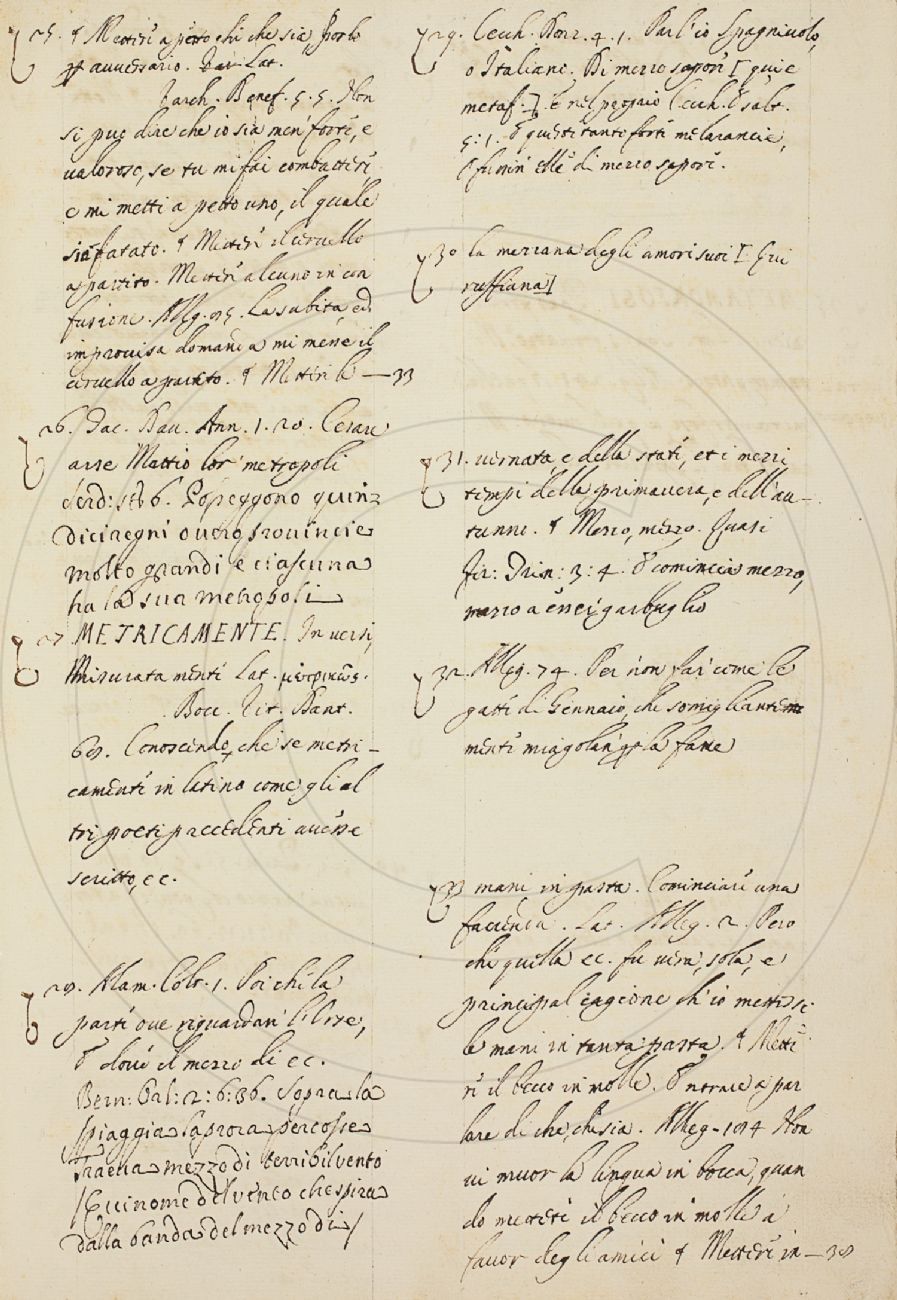 25. ¶ Mettere a petto chi che sia Porlo
p avversario. Lat.
Varch. Benef. 5. 5. Non
si può dire che io sia men' forte, e
valoroso, se tu mi fai combattere,
e mi metti a petto uno, il quale
sia fatato. ¶ Mettere il cervello
a partito. Mettere alcuno in con
fusione. Alleg. 95. La subita, ed
improvisa domanda mi mene il
cervello a partito. ¶ Metter le — 33
26. Tac. Dav. Ann. 1. 20. Cesare
arse Mattio lor' metropoli
Serd: 186. Posseggono quin=
dici regni overo provincie
molto grandi e ciascuna
ha la sua metropoli
27 METRICAMENTE. In versi,
Misurata mente Lat. μετρικῶς.
Bocc. Vit. Dant.
69. Conoscendo, che se metri-
camente in latino come gli al
tri poeti precedenti avesse
scritto, ec.
28. Alam. Colt. 1. Poi che la
parte ove riguardan l'Orse,
E dove il mezzo dì ec.
Bern: Orl: 2: 6: 36. Sopra la
spiaggia la prora percosse
Traeva mezzo dì terribil vento
/Qui nome del vento che spira
dalla banda del mezzo di/
29. Cecch. Donz. 4. 1. Parl' io Spagniuolo,
o Italiano. Di mezzo sapore [ qui è
metaf. ]. E nel proprio Cecch. Esalt.
5: 1. E questi tanto forti melarancie,
E fussin' elle di mezzo sapore.
30 la mezzana degli amori suoi [ Qui
ruffiana ]
31. vernata, e della state, et i mezzi
tempi della primavera, e dell'au-
tunno. ¶ Mezzo, mezzo. Quasi
Fir: Trin: 3: 4. E comincia mezzo,
mezzo a
32. Alleg. 74. Per non far come le
gatte di Gennaio, che somigliante
mente miagolando la fanno
33 mani in pasta. Cominciare una
faccenda. Lat. Alleg. 2. Pero
che quella ec. fu vera, sola, e
principal cagione ch' io mettessi
le mani in tanta pasta. ¶ Mette
re il becco in molle. Entrare a par
lare di che che sia. Alleg. 104 Non
vi muor la lingua in bocca, quan
do mettete il becco in molle a
favor degli amici ¶ Mettere in — 38